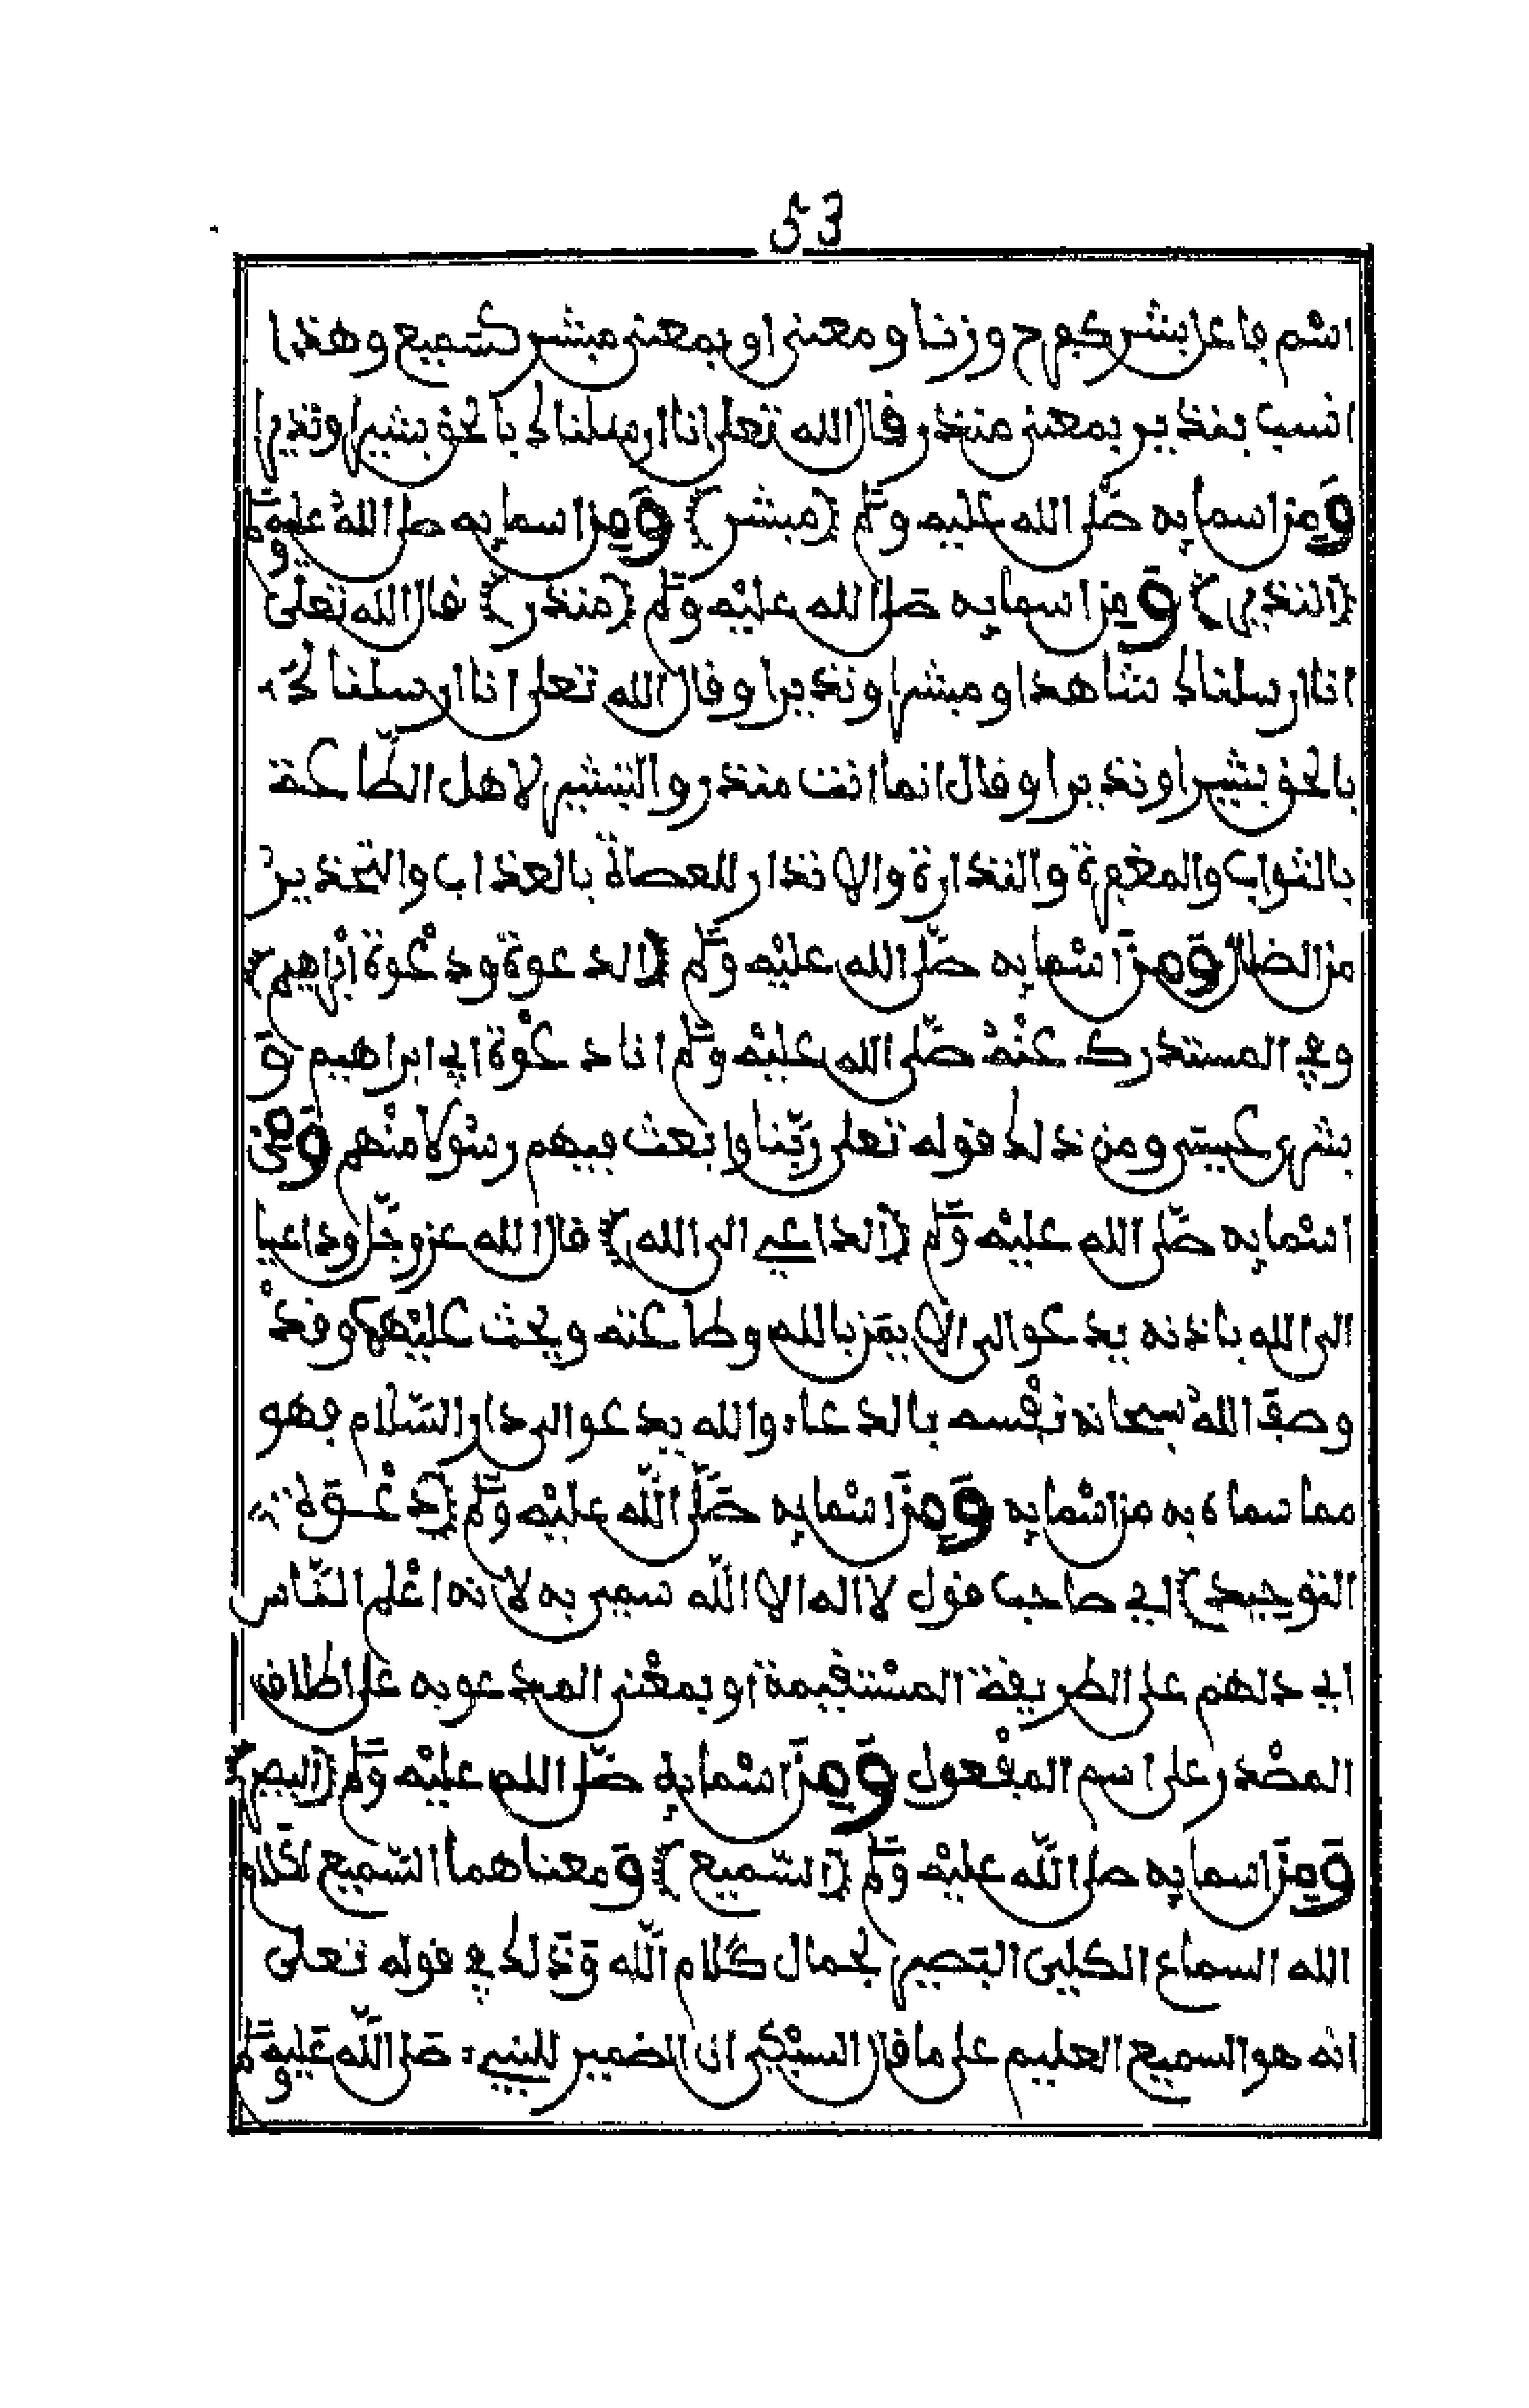 53
اسم فاعل بشر كفرح وزنا ومعنى او بمعنى مبشر كسميع وهذا
انسب بنذير بمعنى منذر قال الله تعلى انا ارسلناك بالحق بشيرا ونذيرا
ومن اسمايه صلى الله عليه وسلم (مبشر) ومن اسمايه صلى الله عليه وسلم
(النذير) ومن اسمايه صلى الله عليه وسلم (منذر) قال الله تعلى
انا ارسلناك شاهدا ومبشرا ونذيرا وقال الله تعلى انا ارسلناك
بالحق بشيرا ونذيرا وقال انما انت منذر والتبشير لاهل الطاعة
بالثواب والمغفرة والنذارة والانذار للعصاة بالعذاب والتحذير
من الضلال ومن اسمايه صلى الله عليه وسلم (الدعوة ودعوة ابراهيم)
وفي المستدرك عنه صلى الله عليه وسلم انا دعوة ابي ابراهيم و
بشرى عيسى ومن ذلك قوله تعلى ربنا وابعث فيهم رسولا منهم ومن
اسمايه صلى الله عليه وسلم (الداعي الى الله) قال الله عز وجل وداعيا
الى الله باذنه يدعوا الى الايمن بالله وطاعته ويحث عليهما وقد
وصف الله سبحانه نفسه بالدعاء والله يدعوا الى دار السلام فهو
مما سماه به من اسمايه ومن اسمايه صلى الله عليه وسلم (دعوة
التوحيد) اي صاحب قول لا اله الا الله سمي به لانه اعلم الناس
اي دلهم على الطريقة المستقيمة او بمعنى المدعو به على اطلاق
المصدر على اسم المفعول ومن اسمايه صلى الله عليه وسلم (البصير)
ومن اسمايه صلى الله عليه وسلم (السميع) ومعناهما السميع لكلام
الله السماع الكلي البصير لجمال كلام الله وذلك في قوله تعلى
انه هو السميع العليم على ما قال السبكي ان الضمير للنبي صلى الله عليه وسلم